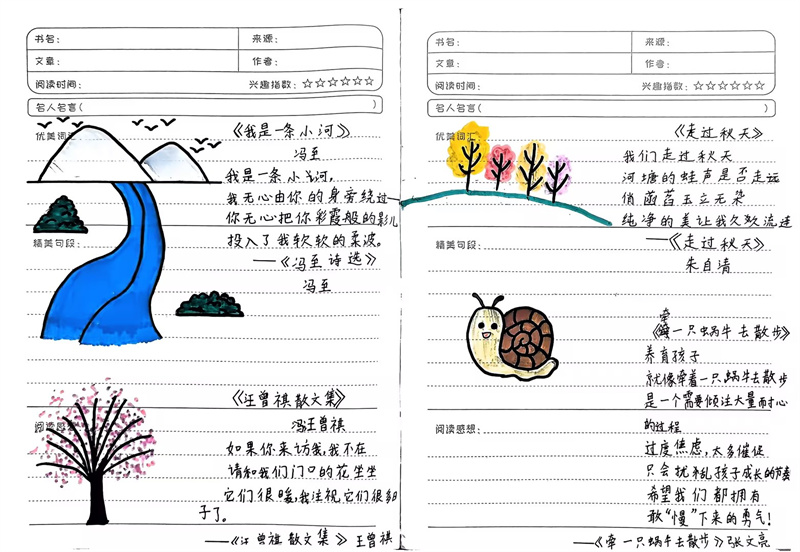 书名：
来源：
文章：
作者：
阅读时间：
兴趣指数：☆☆☆☆☆☆
名人名言（ ）
优美词汇
《我是一条小河》
冯至
我是一条小河，
我无心由你的身旁绕过—
你无心把你彩霞般的影儿
投入了我软软的柔波。
精美句段：
——《冯至诗选》
冯至
《汪曾祺散文集》
冯汪曾祺
阅读感想
如果你来访我，我不在
请和我们门口的花坐坐
它们很暖，我注视它们很多
子了。
——《汪曾祺散文集》汪曾祺
书名：
来源：
文章：
作者：
阅读时间：
兴趣指数：☆☆☆☆☆☆
名人名言（ ）
优美词汇
《走过秋天》
我们走过秋天
河塘的蛙声是否走远
俏菡萏玉立无染
纯净的美让我久久流连
精美句段：
——《走过秋天》
朱自清
牵
《一只蜗牛去散步》
养育孩子
就像牵着一只蜗牛去散步
是一个需要倾注大量耐心
阅读感想：
的过程
过度焦虑，太多催促
只会扰乱孩子成长的节奏
希望我们都拥有
敢“慢”下来的勇气！
——《牵一只蜗牛去散步》张文亮